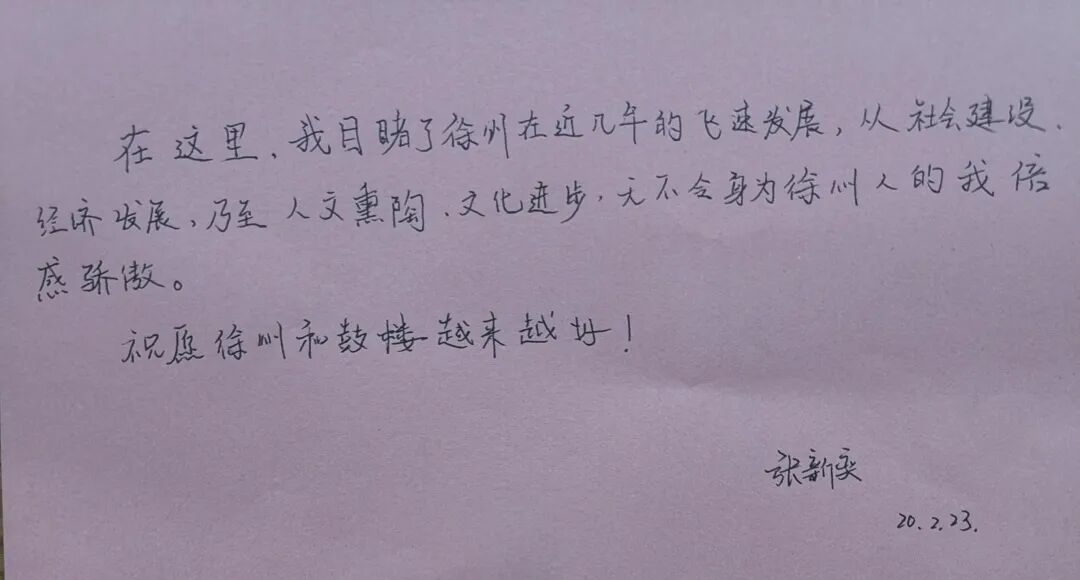 在这里，我目睹了徐州在近几年的飞速发展，从社会建设、
经济发展，乃至人文熏陶、文化进步，无不令身为徐州人的我倍
感骄傲。
祝愿徐州和鼓楼越来越好！
张新奕
20.2.23.